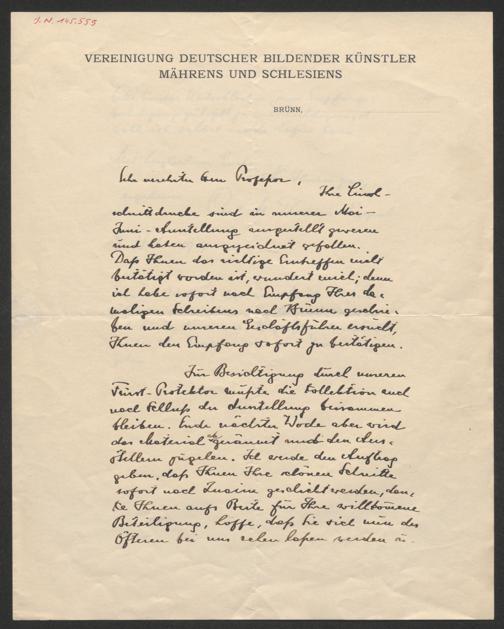 J.N. 145.553
VEREINIGUNG DEUTSCHER BILDENDER KÜNSTLER
MÄHRENS UND SCHLESIENS
BRÜNN,
Sehr verehrter Herr Professor,
Ihre Linol-
schnittdrucke sind in unserer Mai-
Juni-Ausstellung ausgestellt gewesen
und haben ausgezeichnet gefallen.
Daß Ihnen das richtige Eintreffen nicht
bestätigt worden ist, wundert mich; denn
ich habe sofort nach Empfang Ihres da-
maligen Schreibens nach Brünn geschrie-
ben und unseren Geschäftsführer ersucht,
Ihnen den Empfang sofort zu bestätigen.
Für Besichtigung durch unseren
Fürst-Protektor mußte die Kollektion auch
nach Schluß der Ausstellung beisammen
bleiben. Ende nächster Woche aber wird
das Material geräumt und den Aus-
stellern zugehen. Ich werde den Auftrag
geben, daß Ihnen Ihre schönen Schnitte
sofort nach Znaim geschickt werden, dan-
ke Ihnen aufs Beste für Ihre willkommene
Beteiligung, hoffe, daß Sie sich nun des
Öfteren bei uns sehen laßen werden u.